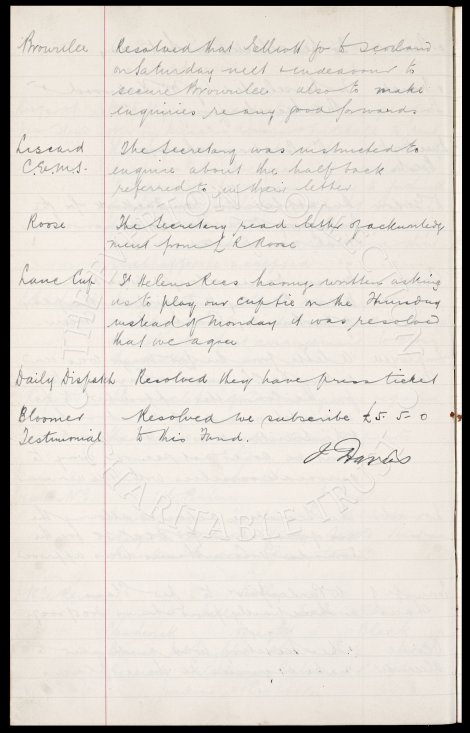 Brownlee Resolved that Elliott go to Scotland
on Saturday next & endeavour to
secure Brownlee also to make
enquiries re any good forwards
Liscard The Secretary was instructed to
C.E.M.S. enquire about the half back
referred to in their letter
Roose The Secretary read letter of acknowledg
ment from L R Roose
Lanc Cup St Helens Recs having written asking
us to play our cup tie on the Thursday
instead of Monday it was resolved
that we agree
Daily Dispatch Resolved they have press ticket
Bloomer Resolved we subscribe £5-5-0
Testimonial to this Fund.
J Davies
CHARITABLE TRUST